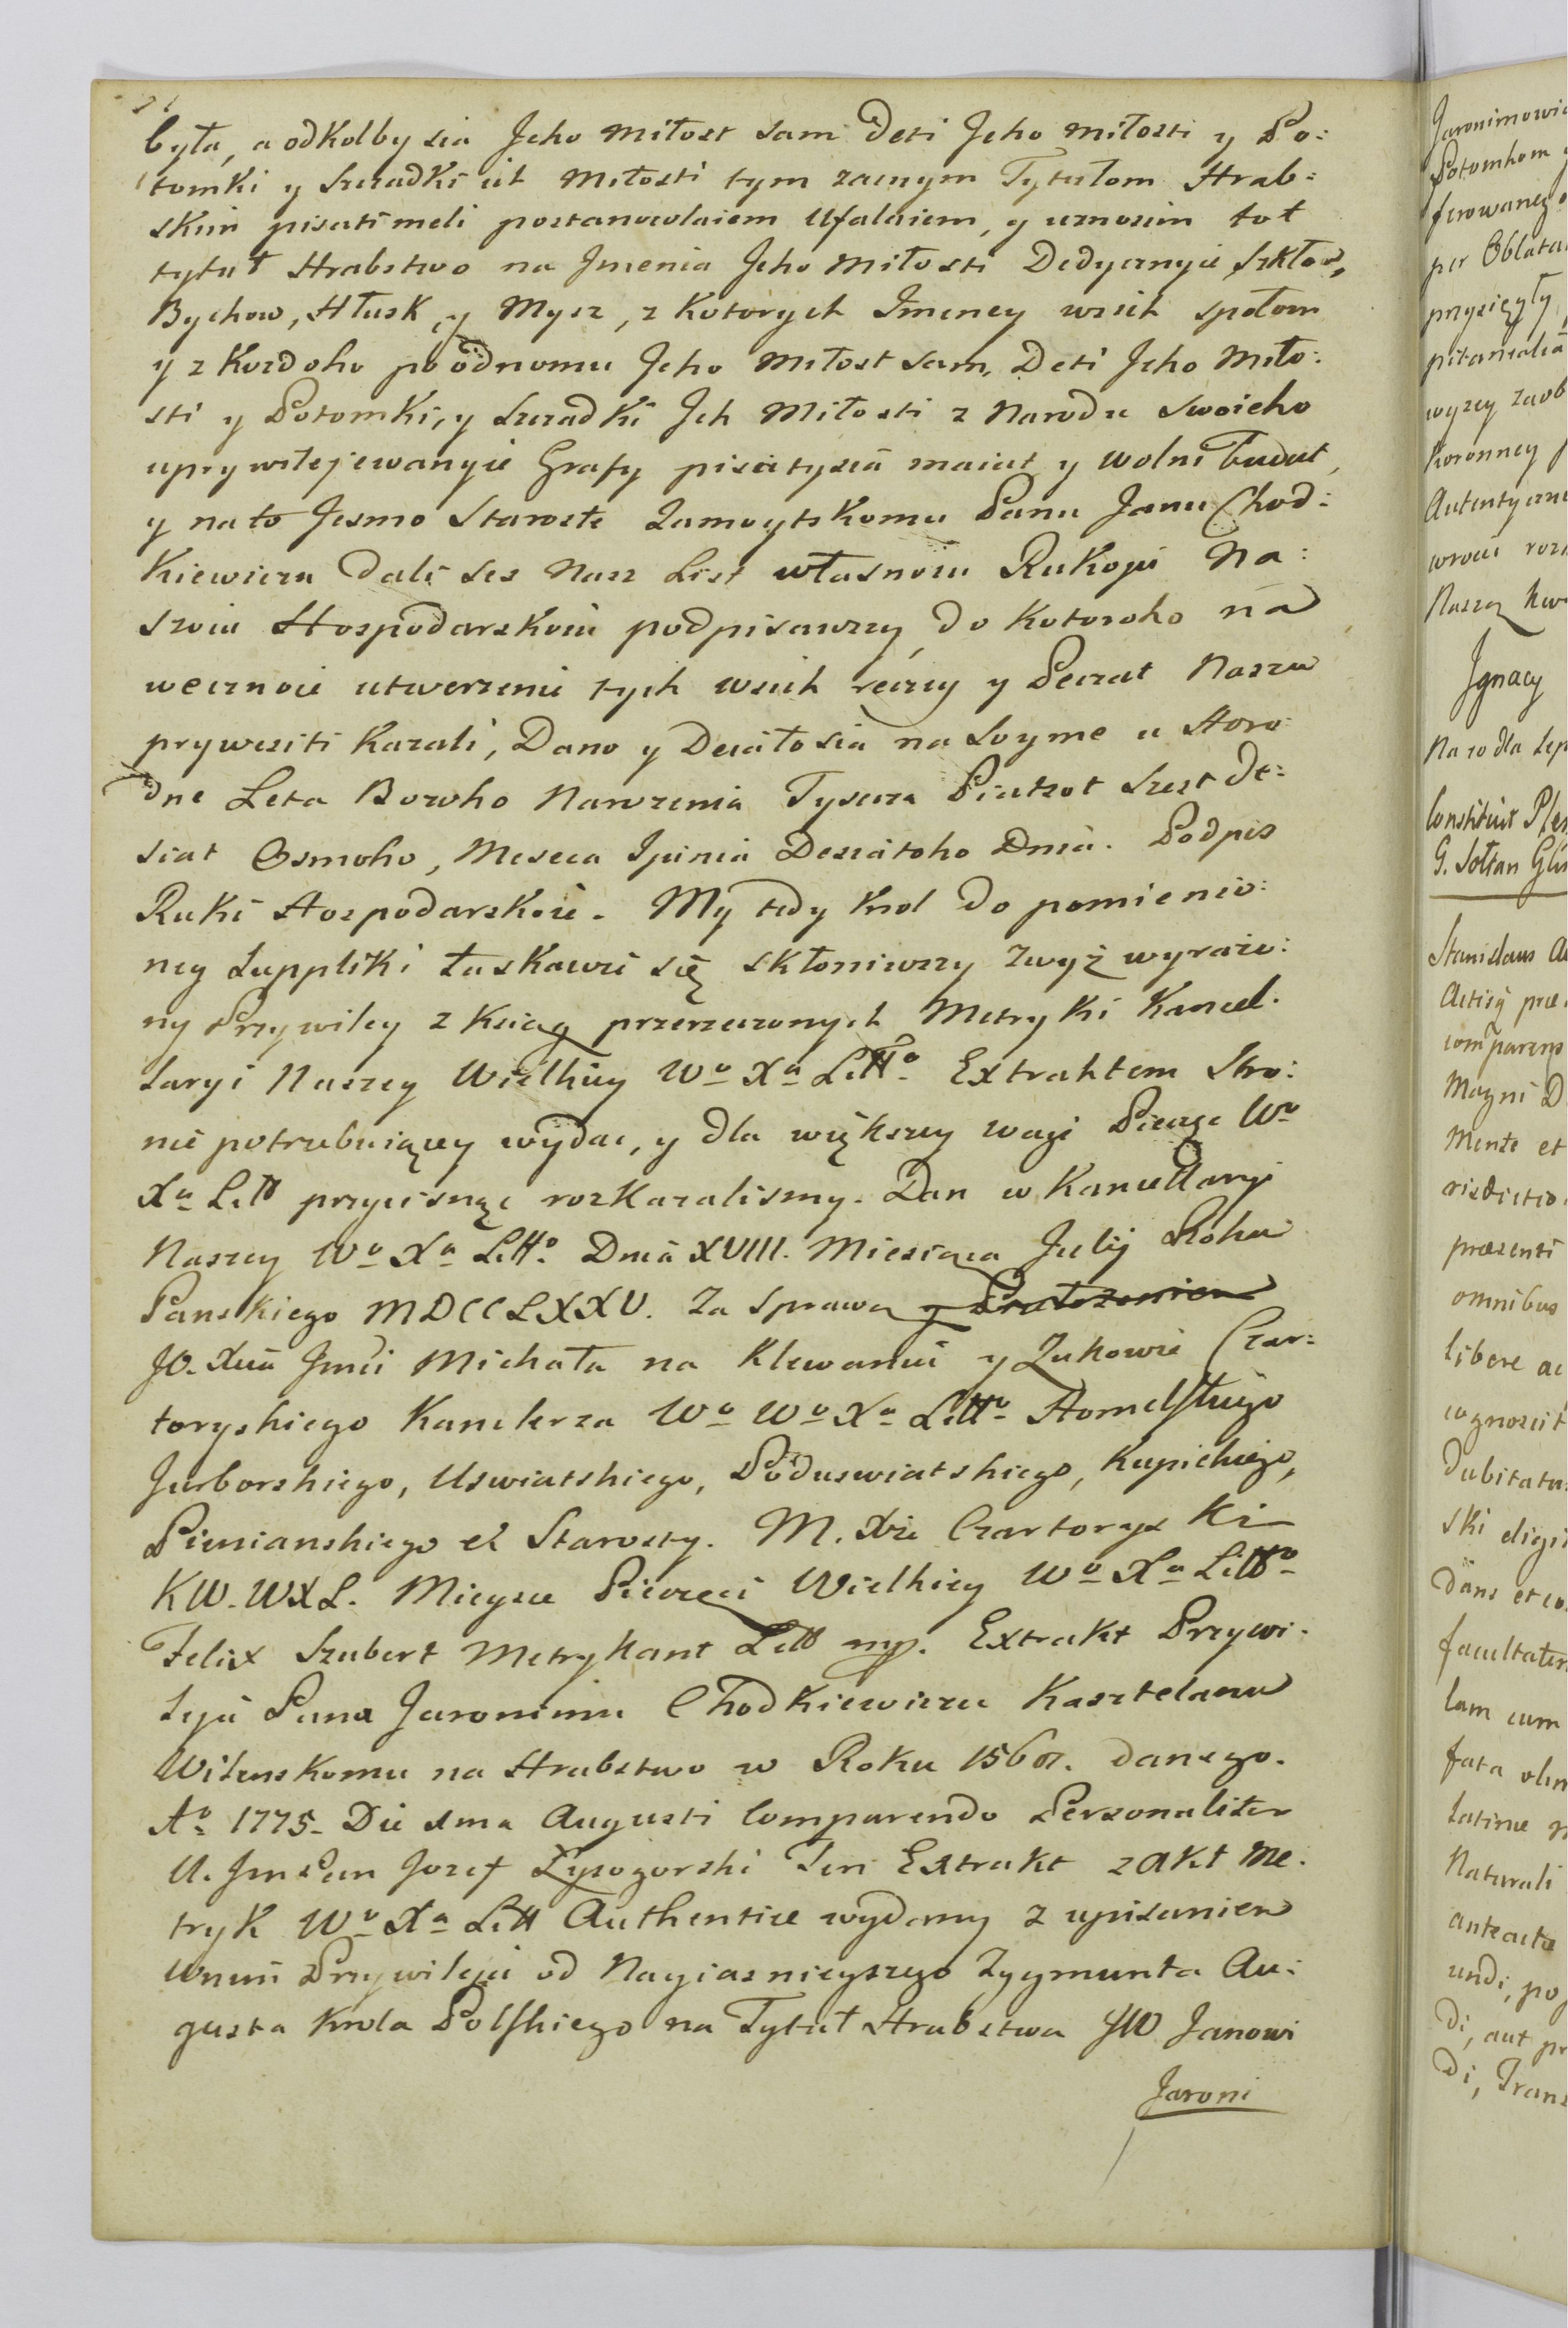 była, a odkolby sia Jeho Miłost sam Deti Jeho miłosti y Po:
tomki y Szczadki ich Miłosti tym zacnym Tytułom Hrab:
skim pisati meli postanowlaiem Ufalaiem, y wznosim tot
tytuł Hrabstwo na Jmenia Jeho Miłosti Dedycznyie Szkłow,
Bychow, Hłusk, y Mysz, z Kotorych Imeney wsich społom
y z Kozdoho po odnomu Jeho Miłost sam, Deti Jeho Miło:
sti y Potomki, y Szczadki Jch Miłosti z Narodu Swoieho
uprywilejewanyie Grafy pisatysia maiut y wolni budut,
y na to Jesmo Staroste Zamoytskomu Panu Janu Chod:
Kiewiczu Dali ses Nasz List własnoiu Rukoju Na:
szoiu Hospodarskoiu podpisawszy, do Kotoroho na
wecznoie utwerzenie tych wsich reczey y Peczat Naszu
prywesiti Kazali, Dano y Deiałosia na Soyme u Horo:
dne Leta Bozoho Narozenia Tysecza Piatsot Szest De:
siat Osmoho, Meseca Ijunia Desiatoho Dnia. Podpis
Ruki Hospodarskoie. My tedy Krol do pomienio:
ney Suppliki łaskawie się skłoniwszy zwyż wyrażo:
ny Przywiley z Xsiąg przerzeczonych Metryki Kancel:
laryi Naszey Wielkiey Wo Xa Litto Extraktem Stro:
nie potrzebuiącey wydac, y dla większey wagi Pieczęc Wo
Xa Litt przycisnąc rozkazalismy. Dan w Kancellaryi
Naszey Wo Xa Litto Dnia XVIII. Miesiąca Julij Roku
Panskiego MDCCLXXV. Za Sprawą y Przełozeniem
JO. Xcia Jmci Michała na Klewaniu y Zukowie Czar:
toryskiego Kanclerza Wo Wo Xa Litto Homelskiego
Jurborskiego, Uswiatskiego, Poduswiatskiego, Kupickiego,
Pienianskiego et Starosty. M. Xże Czartoryski
KW. WXL. Mieysce Pieczęci Wielkiey Wo Xa Litto
Felix Szubert Metrykant Litt mp. Extrakt Przywi:
leju Pana Jaronimu Chodkiewiczu Kasztelanu
Wilenskomu na Hrabstwo w Roku 1568. danego.
Ao 1775. Die xma Augusti Comparendo Personaliter
U. Jm Pan Jozef Łysogorski Ten Extrakt z Akt Me:
tryk Wo Xa Litt Authentice wydany z upisaniem
wnim Przywileju od Nayiasnieyszego Zygmunta Au:
gusta Krola Polskiego na Tytuł Hrabstwa JW Janowi
Jaroni
Jaronimowic
Potomkom y
ferowanego
per Oblatam
przysięgły
pitaniolia
wyzey zaob
Koronney
Autentyczne
wroci
Naszą kw
Jgnacy
Na zo dla lep
Constituit Plen
G. Sołtan
Stanislaus Au
Actisq prae
comparens
Magni D
Mente et
risdictio
praesenti
omnibus
libere ac
cognoscit
dubitatu
ski eligi
dans et co
facultatem
lam cum
fata olim
latione
Naturali
anteacta
undi, po
di, aut pr
di, Trans